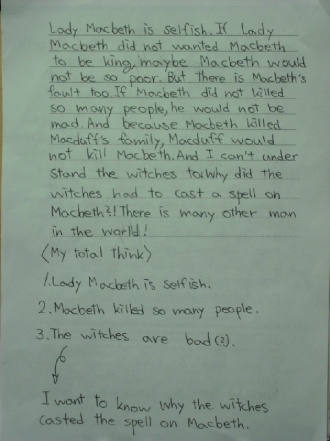 Lady Macbeth is selfish. If Lady
Macbeth did not wanted Macbeth
to be king, maybe Macbeth would
not be so poor. But there is Macbeth's
fault too. If Macbeth did not killed
so many people, he would not be
mad. And because Macbeth killed
Macduff's family, Macduff would
not kill Macbeth. And I can't under
stand the witches too. Why did the
witches had to cast a spell on
Macbeth?! There is many other man
in the world!
<My total think>
1. Lady Macbeth is selfish.
2. Macbeth killed so many people.
3. The witches are bad(?).
I want to know why the witches
casted the spell on Macbeth.